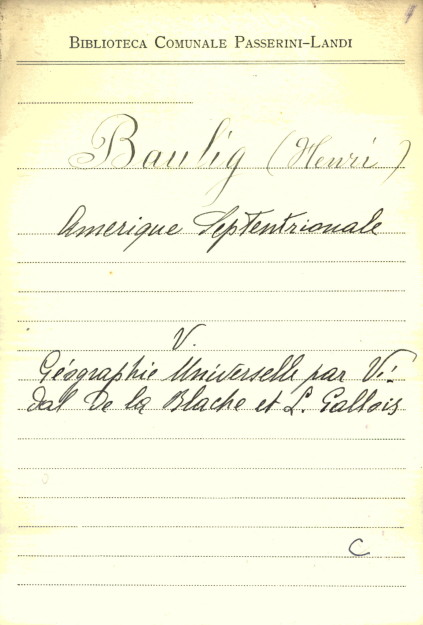 Biblioteca Comunale Passerini-Landi
Baulig (Henri)
Amerique Septentrionale
V.
Géographie Universelle par Vi-
dal de la Blache et L. Gallois
C